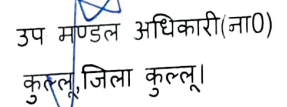 उप मण्डल अधिकारी(ना0)
कुल्लू,जिला कुल्लू।